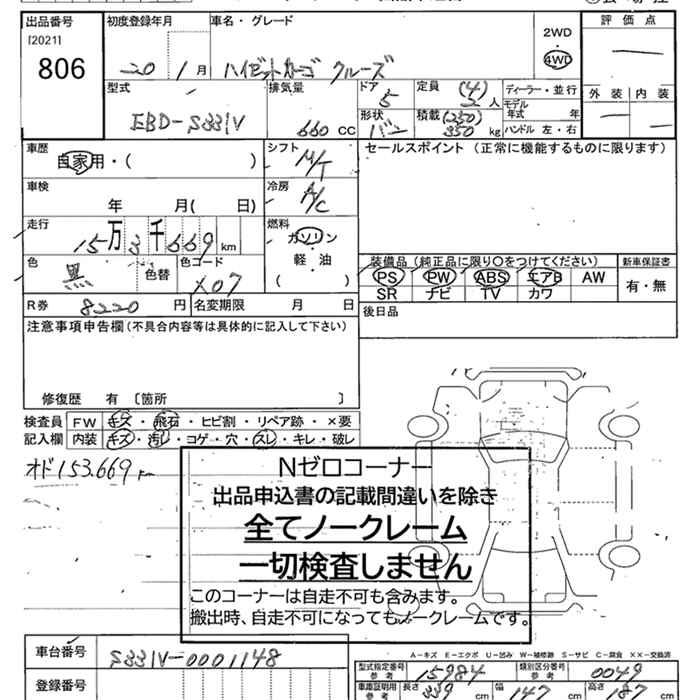 出品番号
[2021]
806
初度登録年月
20 / 1月
車名・グレード
ハイゼットカーゴ クルーズ
2WD
4WD
評価点
外装 内装
型式
EBD-S331V
排気量
660 cc
ドア
5
形状
バン
定員 (4)
2人
積載 (250)
350 kg
ディーラー・並行
モデル年式 年
ハンドル 左・右
車歴
自家用・( )
シフト
M/T
セールスポイント(正常に機能するものに限ります)
車検
年 月( 日)
冷房
A/C
走行
15万3千669km
燃料
ガソリン
軽・油
( )
色
黒
色替
色コード
X07
装備品(純正品に限り○をつけてください)
PS PW ABS エアB AW
SR ナビ TV カワ
新車保証書
有・無
R券 8220円
名変期限 月 日
後日品
注意事項申告欄(不具合内容等は具体的に記入して下さい)
修復歴 有 〔箇所 〕
検査員記入欄
FW キズ・飛石・ヒビ割・リペア跡・×要
内装 キズ・汚し・コゲ・穴・スレ・キレ・破レ
オド153.669km
Nゼロコーナー
出品申込書の記載間違いを除き
全てノークレーム
一切検査しません
このコーナーは自走不可も含みます。
搬出時、自走不可になってもノークレームです。
車台番号
S331V-0001148
登録番号
A-キズ E-エクボ U-凹み W-補修跡 S-サビ C-腐食 XX-交換済
型式指定番号 参考
15984
類別区分番号 参考
0049
車庫証明用 参考
長さ 339 cm
幅 147 cm
高さ 187 cm